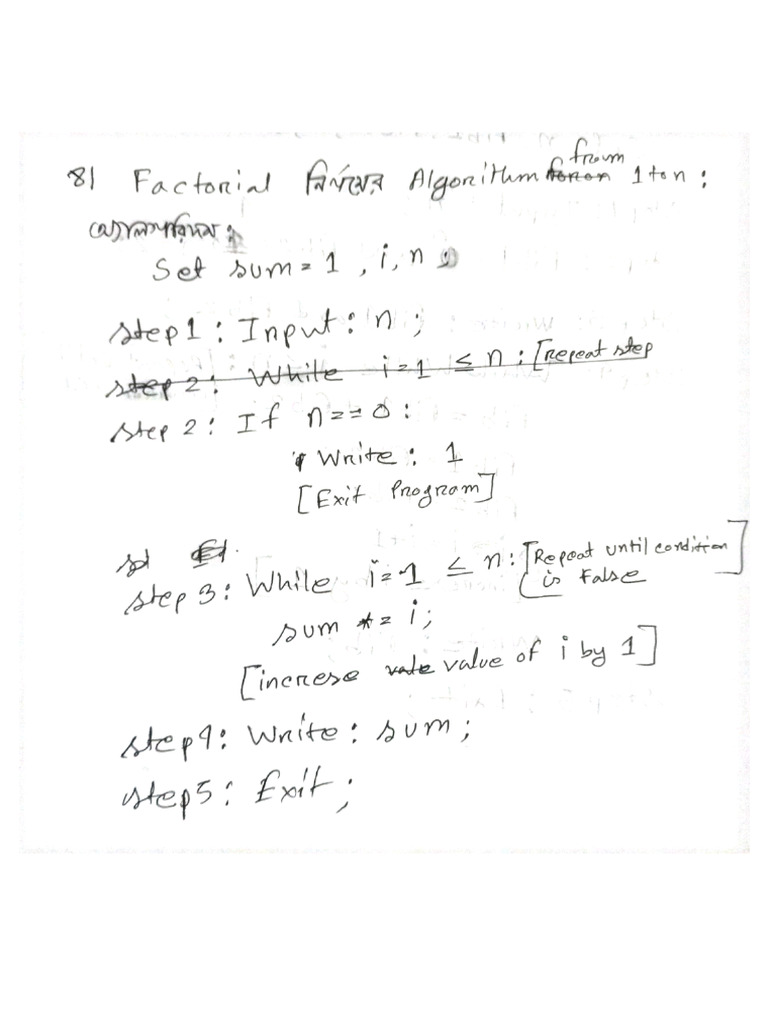 8| Factorial নির্ণয়ের Algorithm from 1 to n :
Set sum = 1 , i, n
step 1 : Input : n ;
step 2 : While i=1 ≤ n : [Repeat step
step 2 : If n==0 :
Write : 1
[Exit Program]
step 3 : While i=1 ≤ n : [Repeat until condition is False]
sum *= i ;
[increse value of i by 1]
step 4 : Write : sum ;
step 5 : Exit ;